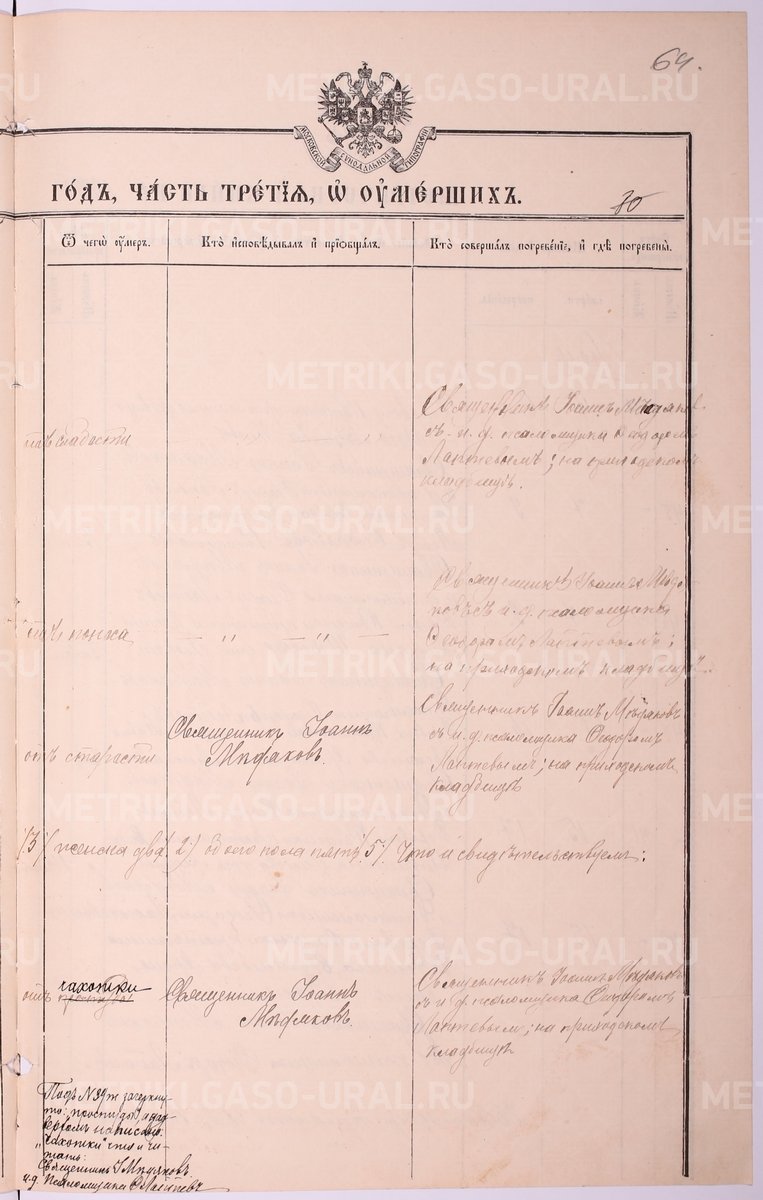 64.
МОСКОВСКОЙ СѴНОДАЛЬНОЙ ТИПОГРАФІИ
ГО́ДЪ, ЧА́СТЬ ТРЕ́ТІѦ, Ѽ ОУ҆МЕ́РШИХЪ.
70
Ѿ чегѡ̀ оу҆́меръ.
Кто̀ и҆сповѣ́дывалъ и҆ приѡбща́лъ.
Кто̀ соверша́лъ погребе́нїе, и҆ гдѣ̀ погребены̀.
отъ слабости
— „ — „ —
Священникъ Іоаннъ Мѣдяковъ
съ и. д. псаломщика Ѳеодоромъ
Лаптевымъ; на приходскомъ
кладбищѣ.
отъ поноса
— „ — „ —
Священникъ Іоаннъ Мѣдя-
ковъ съ и. д. псаломщика
Ѳеодоромъ Лаптевымъ;
на приходскомъ кладбищѣ.
отъ старости
Священникъ Іоаннъ
Мѣдяковъ.
Священникъ Іоаннъ Мѣдяковъ
съ и. д. псаломщика Ѳеодоромъ
Лаптевымъ; на приходскомъ
кладбищѣ
/3/ женска два /2/ обоего пола пять /5/. Что и свидѣтельствуемъ:
отъ простуды чахотки
Священникъ Іоаннъ
Мѣдяковъ.
Священникъ Іоаннъ Мѣдяковъ
съ и. д. псаломщика Ѳеодоромъ
Лаптевымъ; на приходскомъ
кладбищѣ
Подъ № 39 зачеркну-
то: „простуды“ а на-
верхомъ написано
„чахотки“ что и чи-
тать:
Священникъ І Мѣдяковъ.
и. д. Псаломщика Ѳ Лаптевъ
METRIKI.GASO-URAL.RU